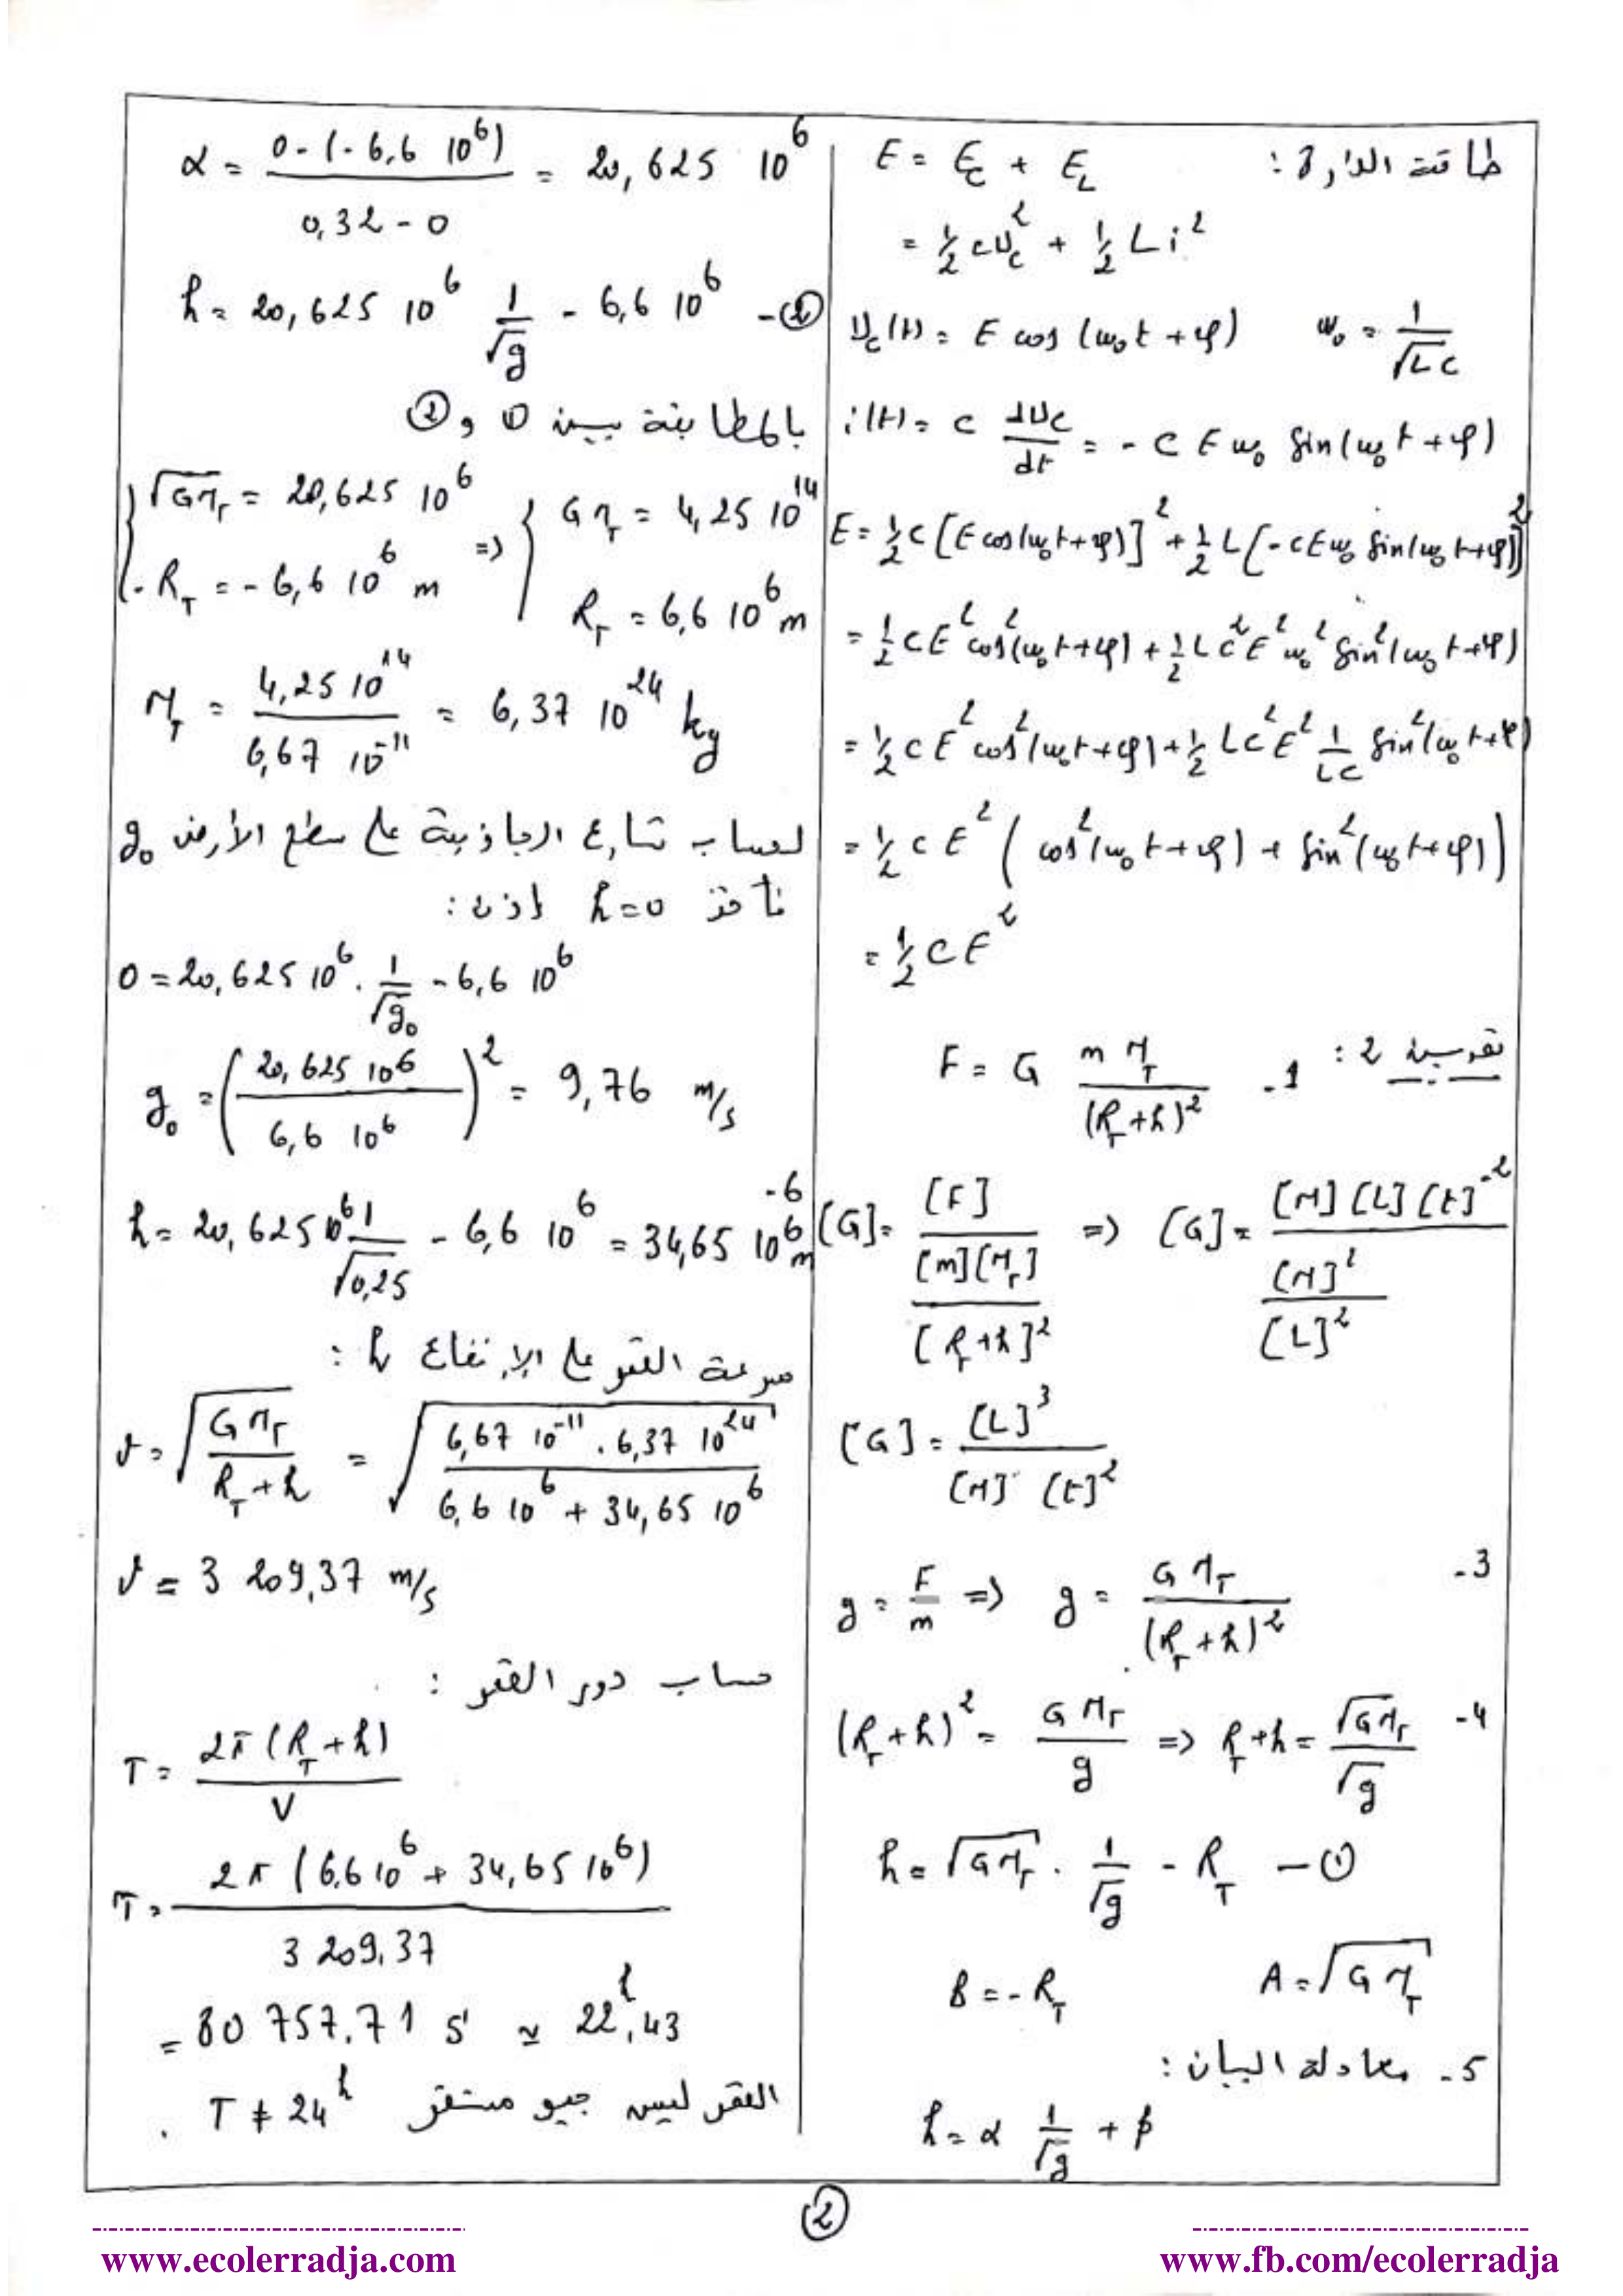 طاقة الدارة : E = E_C + E_L
= 1/2 C U_C^2 + 1/2 L i^2
U_C(t) = E cos (ω_0 t + φ)   ω_0 = 1/√LC
i(t) = C dU_C/dt = - C E ω_0 Sin(ω_0 t + φ)
E = 1/2 C [E cos(ω_0 t + φ)]^2 + 1/2 L [-C E ω_0 Sin(ω_0 t + φ)]^2
= 1/2 C E^2 cos^2(ω_0 t + φ) + 1/2 L C^2 E^2 ω_0^2 Sin^2(ω_0 t + φ)
= 1/2 C E^2 cos^2(ω_0 t + φ) + 1/2 L C^2 E^2 1/LC Sin^2(ω_0 t + φ)
= 1/2 C E^2 ( cos^2(ω_0 t + φ) + Sin^2(ω_0 t + φ))
= 1/2 C E^2
تمرين 2 :
1- F = G m M_T/(R_T+h)^2
[G] = [F]/([m][M_T]/[R_T+h]^2) => [G] = [M][L][t]^-2/([M]^2/[L]^2)
[G] = [L]^3/([M] [t]^2)
3- g = F/m => g = G M_T/(R_T+h)^2
4- (R_T+h)^2 = G M_T/g => R_T+h = √GM_T/√g
h = √GM_T . 1/√g - R_T - ①
A = √GM_T   B = - R_T
5- معادلة البيان :
h = α 1/√g + β
α = (0 - (- 6,6 10^6))/(0,32 - 0) = 20,625 10^6
h = 20,625 10^6 1/√g - 6,6 10^6 - ②
بالمطابقة بين ① و ②
{ √GM_T = 20,625 10^6   - R_T = - 6,6 10^6 m => { G M_T = 4,25 10^14   R_T = 6,6 10^6 m
M_T = 4,25 10^14/6,67 10^-11 = 6,37 10^24 kg
لحساب تسارع الجاذبية على سطح الأرض g_0
نأخذ h = 0 إذن :
0 = 20,625 10^6 . 1/√g_0 - 6,6 10^6
g_0 = (20,625 10^6/6,6 10^6)^2 = 9,76 m/s
-6
h = 20,625 10^6 1/√0,25 - 6,6 10^6 = 34,65 10^6 m
سرعة القمر على الإرتفاع h :
v = √(G M_T/(R_T + h)) = √(6,67 10^-11 . 6,37 10^24/(6,6 10^6 + 34,65 10^6))
v = 3 209,37 m/s
حساب دور القمر :
T = 2π (R_T + h)/V
T = 2π (6,6 10^6 + 34,65 10^6)/3 209,37
= 80 757,71 s ≃ 22^h,43
القمر ليس جيو مستقر T ≠ 24^h .
2
www.ecolerradja.com
www.fb.com/ecolerradja